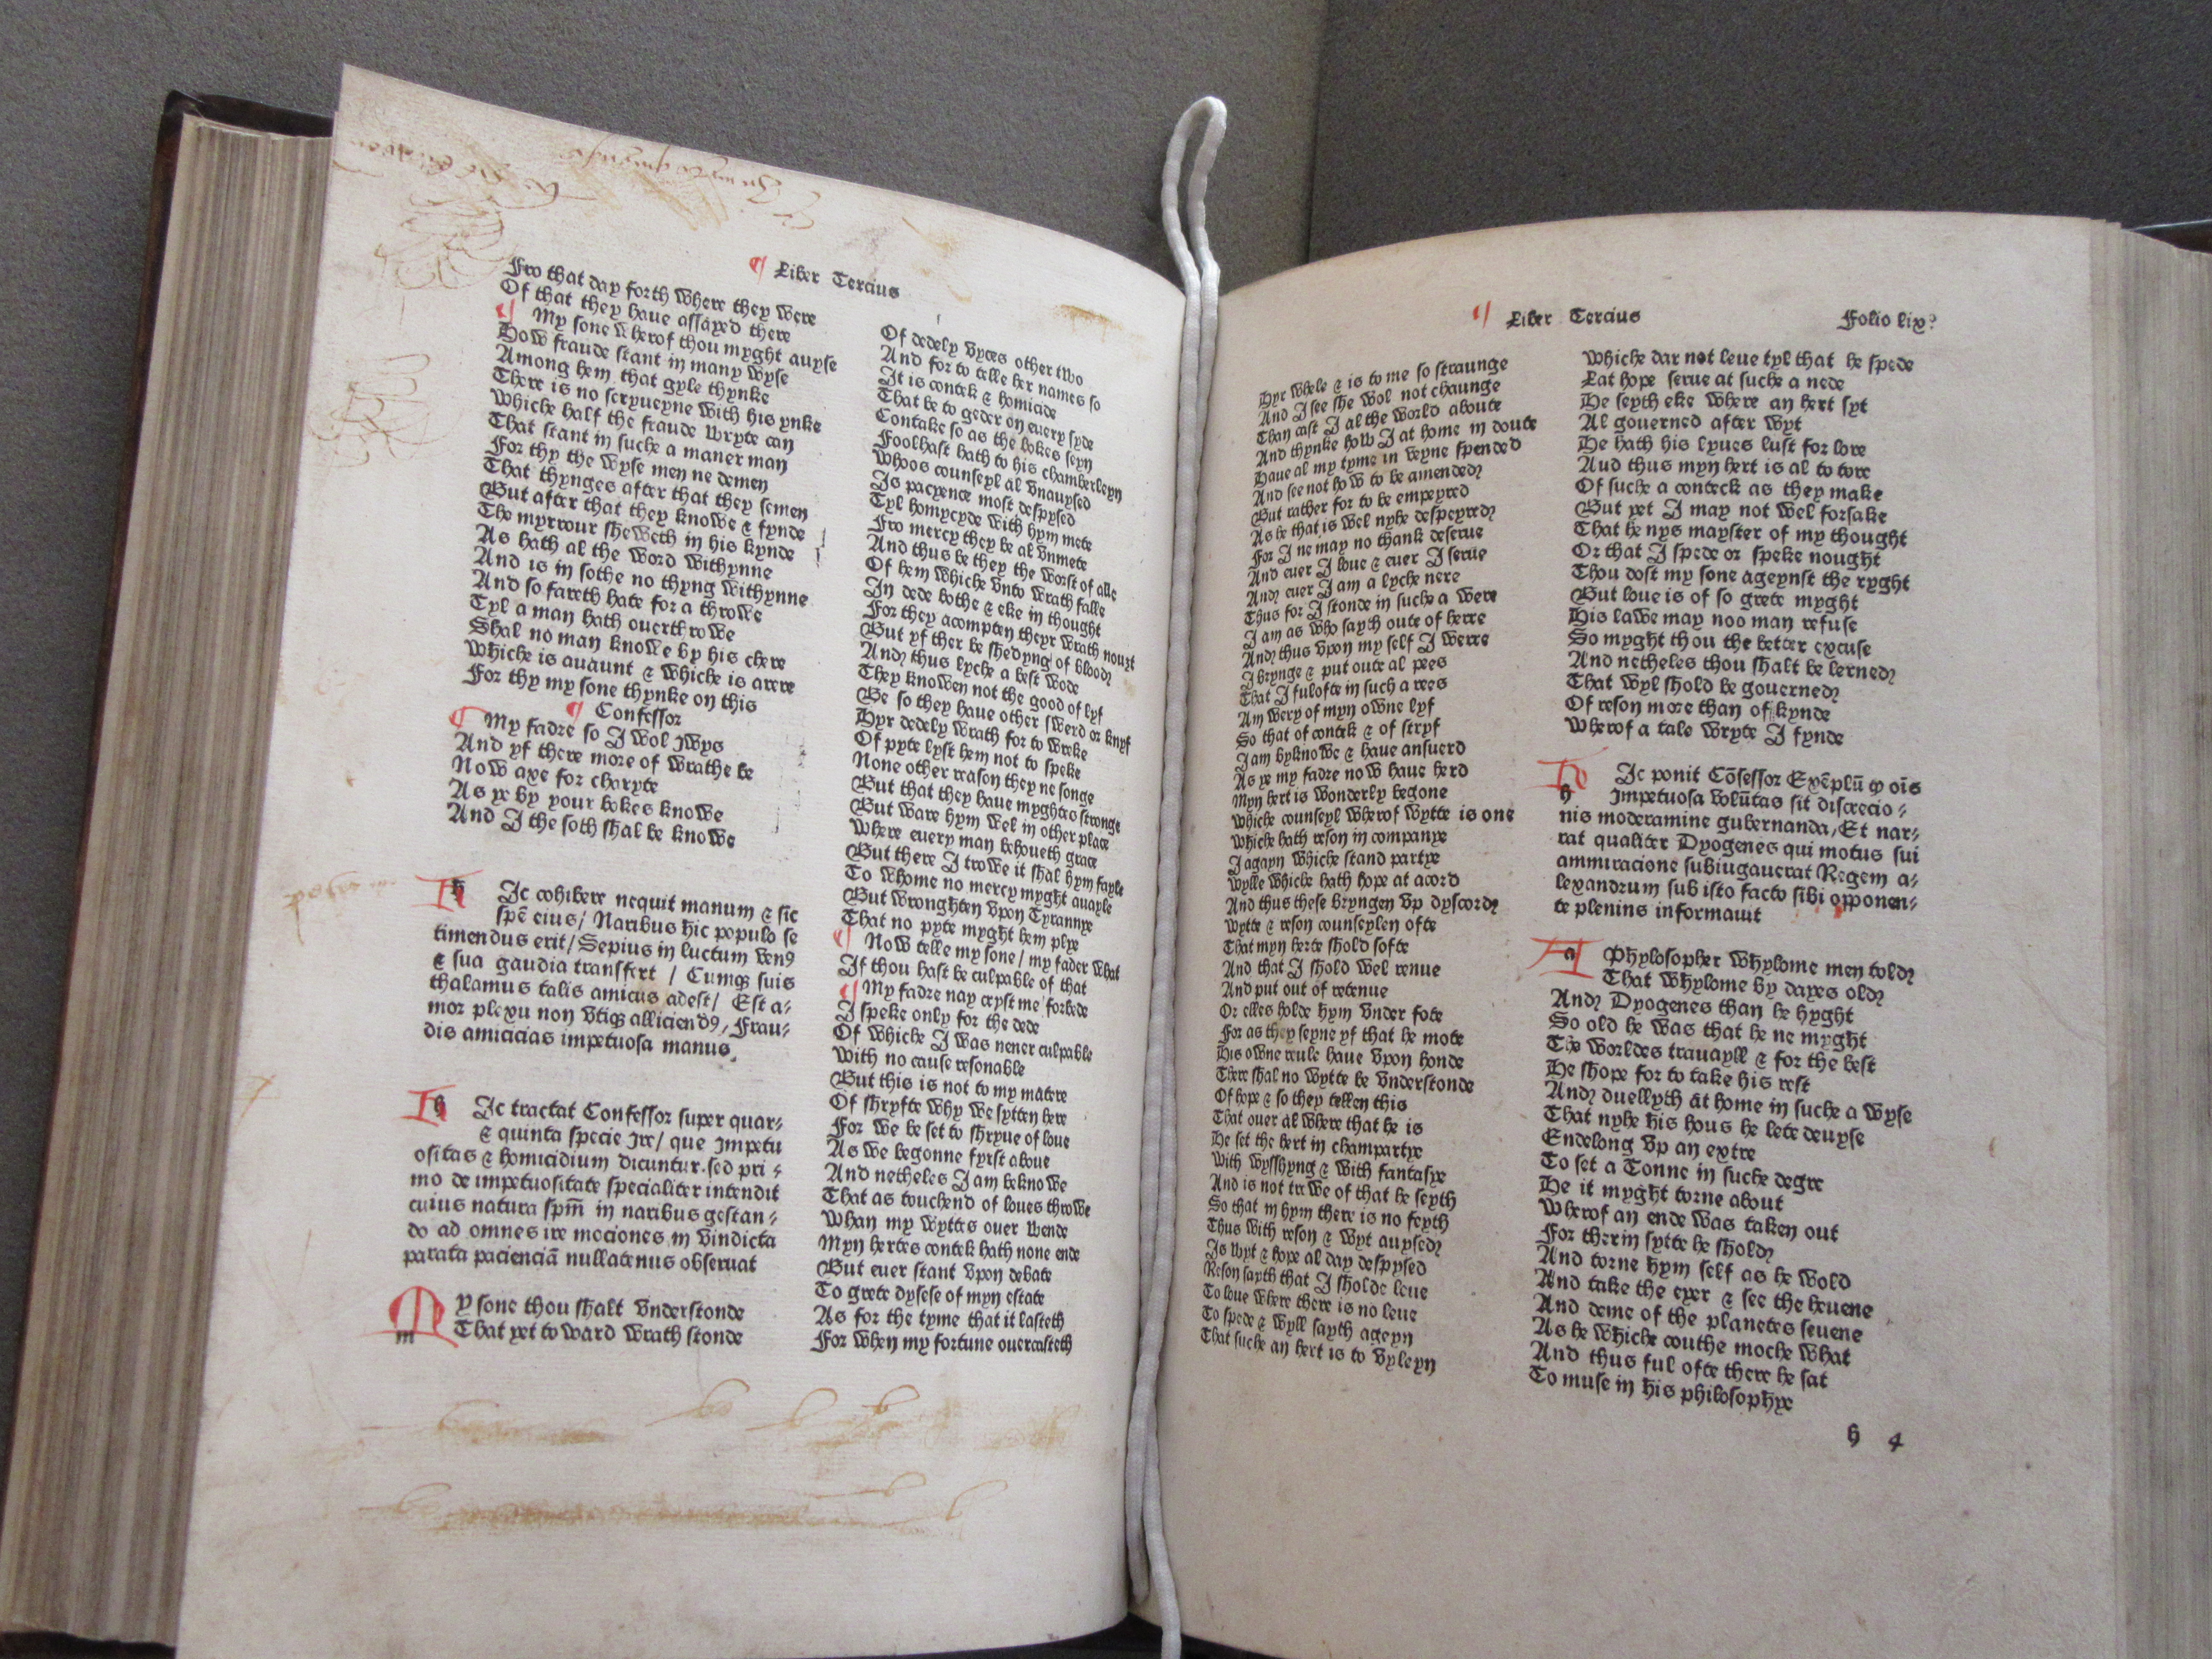 ¶ Liber Tercius
Fro that day forth where they were
Of that they haue assayed there
¶ My sone wherof thou myght auyse
How fraude stant in many wyse
Among hem that gyle thynke
There is no scryueyne with his ynke
Whiche half the fraude wryte can
That stant in suche a maner man
For thy the wyse men ne demen
That thynges after that they semen
But after that they knowe & fynde
The myrrour sheweth in his kynde
As hath al the word withynne
And is in sothe no thyng withynne
And so fareth hate for a throwe
Tyl a man hath ouerthrowe
Shal no man knowe by his chere
Whiche is auaunt & whiche is arere
For thy my sone thynke on this
¶ Confessor
¶ My fadre so I wol ywys
And yf there more of wrathe be
Now axe for charyte
As ye by your bokes knowe
And I the soth shal be knowe
hIc cohibere nequit manum & sic
spē eius / Naribus hic populo se
timendus erit / Sepius in luctum venꝰ
& sua gaudia transfert / Cumqꝫ suis
thalamus talis amicus adest / Est a-
mor plexu non vtiqꝫ alliciendꝰ, Frau-
dis amicicias impetuosa manus.
hIc tractat Confessor super quar-
& quinta specie Ire / que Impetu
ositas & homicidium dicuntur. sed pri-
mo de impetuositate specialiter intendit
cuius natura spm̄ in naribus gestan-
do ad omnes ire mociones in vindicta
parata pacienciā nullatenus obseruat
My sone thou shalt vnderstonde
That yet toward wrath stonde
Of dedely vyces other two
And for to telle her names so
It is contek & homicide
That be to geder on euery syde
Contake so as the bokes seyn
Foolhast hath to his chamberleyn
Whoos counseyl al vnauysed
Is pacyence most despysed
Tyl homycyde with hym mete
Fro mercy they be al vnmete
And thus be they the worst of alle
Of hem whiche vnto wrath falle
In dede bothe & eke in thought
For they acompten theyr wrath nouzt
But yf ther be shedyng of blood
And thus lyche a best wode
They knowen not the good of lyf
Be so they haue other swerd or knyf
Hyr dedely wrath for to wreke
Of pyte lyst hem not to speke
None other reason they ne fonge
But that they haue myghtes stronge
But ware hym wel in other place
Where euery man behoueth grace
But there I trowe it shal hym fayle
To whome no mercy myght auayle
But wronghten vpon Tyrannye
That no pyte myght hem plye
¶ Now telle my sone / my fader what
If thou hast be culpable of that
¶ My fadre nay cryst me forbede
I speke only for the dede
Of whiche I was neuer culpable
With no cause resonable
But this is not to my matere
Of shryfte why we sytten here
For we be set to shryue of loue
As we begonne fyrst aboue
And netheles I am beknowe
That as touchend of loues throwe
Whan my wyttes ouer wende
Myn hertes contek hath none ende
But euer stant vpon debate
To grete dysese of myn estate
As for the tyme that it lasteth
For when my fortune ouercasteth
¶ Liber Tercius Folio lix?
Hyr whele & is to me so straunge
And I see she wol not chaunge
Than cast I al the world aboute
And thynke how I at home in doute
Haue al my tyme in veyne spended
And see not how to be amended
But rather for to be empeyred
As he that is wel nyhe despeyred
For I ne may no thank deserue
And euer I loue & euer I serue
And euer I am a lyche nere
Thus for I stonde in suche a were
I am as who sayth oute of herre
And thus vpon my self I werre
I brynge & put oute al pees
That I fulofte in such a rees
Am wery of myn owne lyf
So that of contek & of stryf
I am byknowe & haue ansuerd
As ye my fadre now haue herd
Myn hert is wonderly begone
Whiche counseyl wherof wytte is one
Whiche hath reson in companye
I agayn whiche stand partye
Wylle whiche hath hope at acord
And thus these bryngen vp dyscord
Wytte & reson counseylen ofte
That myn herte shold softe
And that I shold wel renue
And put out of retenue
Or elles holde hym vnder fote
For as they seyne yf that he mote
His owne reule haue vpon honde
There shal no wytte be vnderstonde
Of hope & so they tellen this
That ouer al where that he is
He set the hert in champartye
With wysshyng & with fantasye
And is not trewe of that he seyth
So that in hym there is no feyth
Thus with reson & wyt auysed
Is wyt & hope al day despysed
Reson sayth that I sholde leue
To loue where there is no leue
To spede & wyll sayth ageyn
That suche an hert is to vyleyn
Whiche dar not leue tyl that he spede
Lat hope serue at suche a nede
He seyth eke where an hert syt
Al gouerned after wyt
He hath his lyues lust forlore
Aud thus myn hert is al to tore
Of suche a conteck as they make
But yet I may not wel forsake
That he nys mayster of my thought
Or that I spede or speke nought
Thou dost my sone ageynst the ryght
But loue is of so grete myght
His lawe may noo man refuse
So myght thou the better excuse
And netheles thou shalt be lerned
That wyl shold be gouerned
Of reson more than of kynde
Wherof a tale wryte I fynde
hIc ponit Cōfessor Exēplū ꝙ oīs
Impetuosa volūtas sit discrecio-
nis moderamine gubernanda, Et nar-
rat qualiter Dyogenes qui motus sui
ammiracione subiugauerat Regem a-
lexandrum sub isto facto sibi opponen-
te plenins informauit
a Phylosopher whylome men told
That whylome by dayes old
And Dyogenes than he hyght
So old he was that he ne myght
The worldes trauayll & for the best
He shope for to take his rest
And duellyth at home in suche a wyse
That nyhe his hous he lete deuyse
Endelong vp an extre
To set a Tonne in suche degre
He it myght torne about
Wherof an ende was taken out
For therin sytte he shold
And torne hym self as he wold
And take the eyer & see the heuene
And deme of the planetes seuene
As he whiche couthe moche what
And thus ful ofte there he sat
To muse in his philosophye
h 4